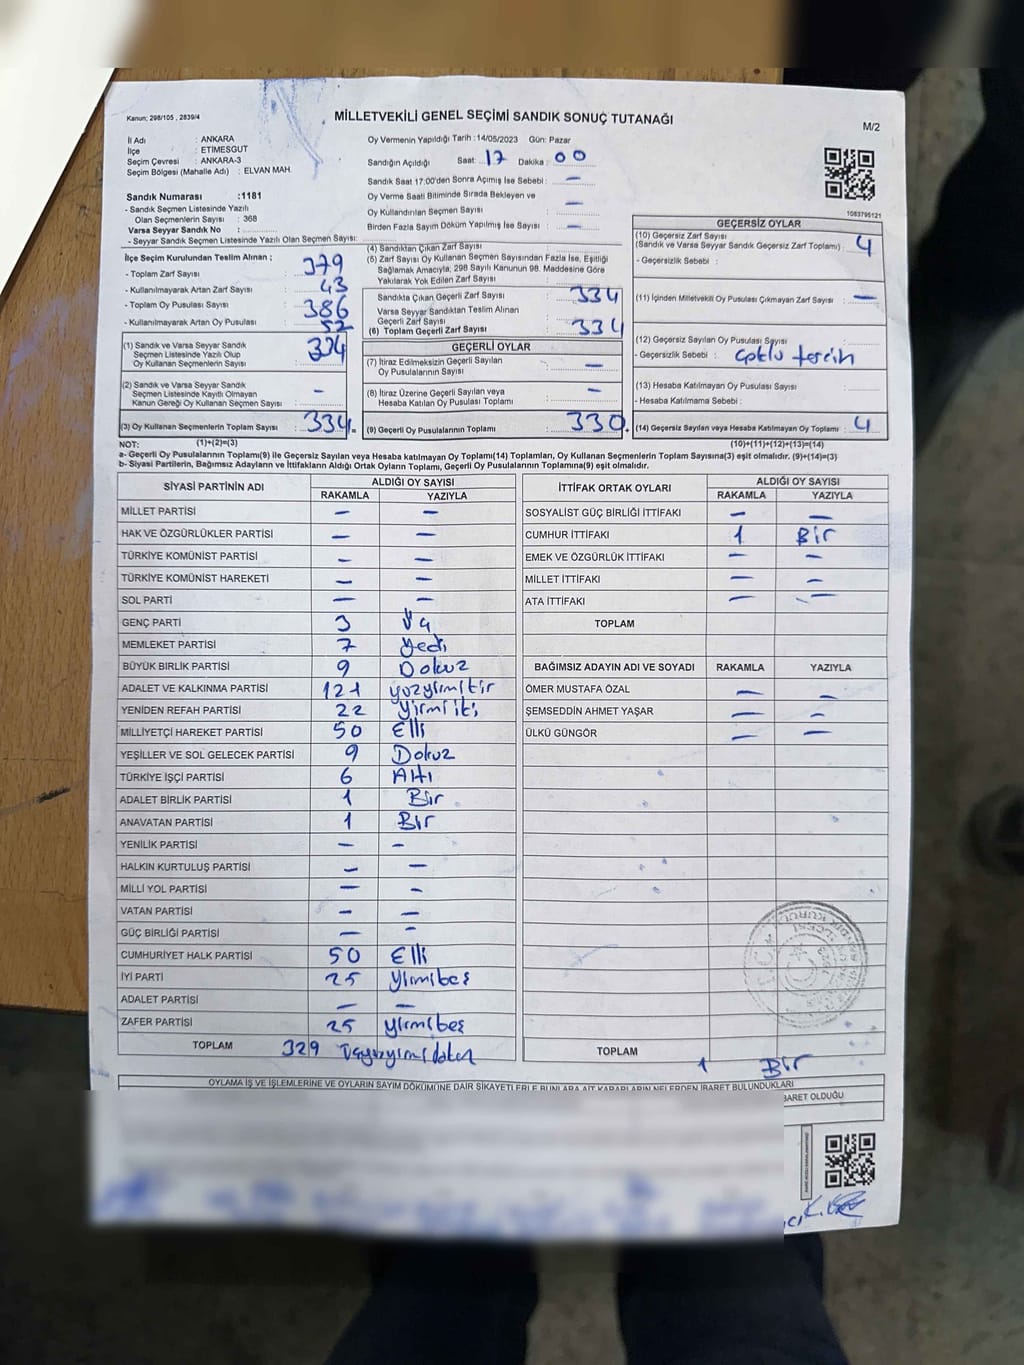 Kanun; 298/105 , 2839/4
MİLLETVEKİLİ GENEL SEÇİMİ SANDIK SONUÇ TUTANAĞI
M/2
İl Adı : ANKARA
İlçe : ETİMESGUT
Seçim Çevresi : ANKARA-3
Seçim Bölgesi (Mahalle Adı) : ELVAN MAH.
Sandık Numarası :1181
- Sandık Seçmen Listesinde Yazılı
Olan Seçmenlerin Sayısı : 368
Varsa Seyyar Sandık No :
- Seyyar Sandık Seçmen Listesinde Yazılı Olan Seçmen Sayısı:
Oy Vermenin Yapıldığı Tarih :14/05/2023 Gün: Pazar
Sandığın Açıldığı Saat: 17 Dakika : 00
Sandık Saat 17:00'den Sonra Açımış İse Sebebi : —
Oy Verme Saati Bitiminde Sırada Bekleyen ve
Oy Kullandırılan Seçmen Sayısı : —
Birden Fazla Sayım Döküm Yapılmış İse Sayısı : —
1083795121
İlçe Seçim Kurulundan Teslim Alınan ;
- Toplam Zarf Sayısı : 379
- Kullanılmayarak Artan Zarf Sayısı : 43
- Toplam Oy Pusulası Sayısı : 386
- Kullanılmayarak Artan Oy Pusulası : 52
(1) Sandık ve Varsa Seyyar Sandık
Seçmen Listesinde Yazılı Olup
Oy Kullanan Seçmenlerin Sayısı : 334
(2) Sandık ve Varsa Seyyar Sandık
Seçmen Listesinde Kayıtlı Olmayan
Kanun Gereği Oy Kullanan Seçmen Sayısı : -
(3) Oy Kullanan Seçmenlerin Toplam Sayısı : 334.
(4) Sandıktan Çıkan Zarf Sayısı :
(5) Zarf Sayısı Oy Kullanan Seçmen Sayısından Fazla İse, Eşitliği
Sağlamak Amacıyla; 298 Sayılı Kanunun 98. Maddesine Göre
Yakılarak Yok Edilen Zarf Sayısı :
Sandıkta Çıkan Geçerli Zarf Sayısı : 334
Varsa Seyyar Sandıktan Teslim Alınan
Geçerli Zarf Sayısı :
(6) Toplam Geçerli Zarf Sayısı : 334
GEÇERLİ OYLAR
(7) İtiraz Edilmeksizin Geçerli Sayılan
Oy Pusulalarının Sayısı : —
(8) İtiraz Üzerine Geçerli Sayılan veya
Hesaba Katılan Oy Pusulası Toplamı : —
(9) Geçerli Oy Pusulalarının Toplamı : 330.
GEÇERSİZ OYLAR
(10) Geçersiz Zarf Sayısı
(Sandık ve Varsa Seyyar Sandık Geçersiz Zarf Toplamı) : 4
- Geçersizlik Sebebi :
(11) İçinden Milletvekili Oy Pusulası Çıkmayan Zarf Sayısı : —
(12) Geçersiz Sayılan Oy Pusulası Sayısı :
- Geçersizlik Sebebi : çoklu tercih
(13) Hesaba Katılmayan Oy Pusulası Sayısı :
- Hesaba Katılmama Sebebi :
(14) Geçersiz Sayılan veya Hesaba Katılmayan Oy Toplamı : 4
NOT: (1)+(2)=(3) (10)+(11)+(12)+(13)=(14)
a- Geçerli Oy Pusulalarının Toplamı(9) ile Geçersiz Sayılan veya Hesaba katılmayan Oy Toplamı(14) Toplamları, Oy Kullanan Seçmenlerin Toplam Sayısına(3) eşit olmalıdır. (9)+(14)=(3)
b- Siyasi Partilerin, Bağımsız Adayların ve İttifakların Aldığı Ortak Oyların Toplamı, Geçerli Oy Pusulalarının Toplamına(9) eşit olmalıdır.
SİYASİ PARTİNİN ADI ALDIĞI OY SAYISI
RAKAMLA YAZIYLA
MİLLET PARTİSİ — —
HAK VE ÖZGÜRLÜKLER PARTİSİ — —
TÜRKİYE KOMÜNİST PARTİSİ — —
TÜRKİYE KOMÜNİST HAREKETİ — —
SOL PARTİ — —
GENÇ PARTİ 3 Üç
MEMLEKET PARTİSİ 7 Yedi
BÜYÜK BİRLİK PARTİSİ 9 Dokuz
ADALET VE KALKINMA PARTİSİ 121 yüzyirmibir
YENİDEN REFAH PARTİSİ 22 Yirmi iki
MİLLİYETÇİ HAREKET PARTİSİ 50 Elli
YEŞİLLER VE SOL GELECEK PARTİSİ 9 Dokuz
TÜRKİYE İŞÇİ PARTİSİ 6 Altı
ADALET BİRLİK PARTİSİ 1 Bir
ANAVATAN PARTİSİ 1 Bir
YENİLİK PARTİSİ — —
HALKIN KURTULUŞ PARTİSİ — —
MİLLİ YOL PARTİSİ — —
VATAN PARTİSİ — —
GÜÇ BİRLİĞİ PARTİSİ — —
CUMHURİYET HALK PARTİSİ 50 Elli
İYİ PARTİ 25 yirmibeş
ADALET PARTİSİ — —
ZAFER PARTİSİ 25 yirmibeş
TOPLAM 329 üçyüzyirmidokuz
İTTİFAK ORTAK OYLARI ALDIĞI OY SAYISI
RAKAMLA YAZIYLA
SOSYALİST GÜÇ BİRLİĞİ İTTİFAKI — —
CUMHUR İTTİFAKI 1 Bir
EMEK VE ÖZGÜRLÜK İTTİFAKI — —
MİLLET İTTİFAKI — —
ATA İTTİFAKI — —
TOPLAM
BAĞIMSIZ ADAYIN ADI VE SOYADI RAKAMLA YAZIYLA
ÖMER MUSTAFA ÖZAL — —
ŞEMSEDDİN AHMET YAŞAR — —
ÜLKÜ GÜNGÖR — —
TOPLAM 1 Bir
OYLAMA İŞ VE İŞLEMLERİNE VE OYLARIN SAYIM DÖKÜMÜNE DAİR ŞİKAYETLERLE BUNLARA AİT KARARLARIN NELERDEN İBARET BULUNDUKLARI
BARET OLDUĞU